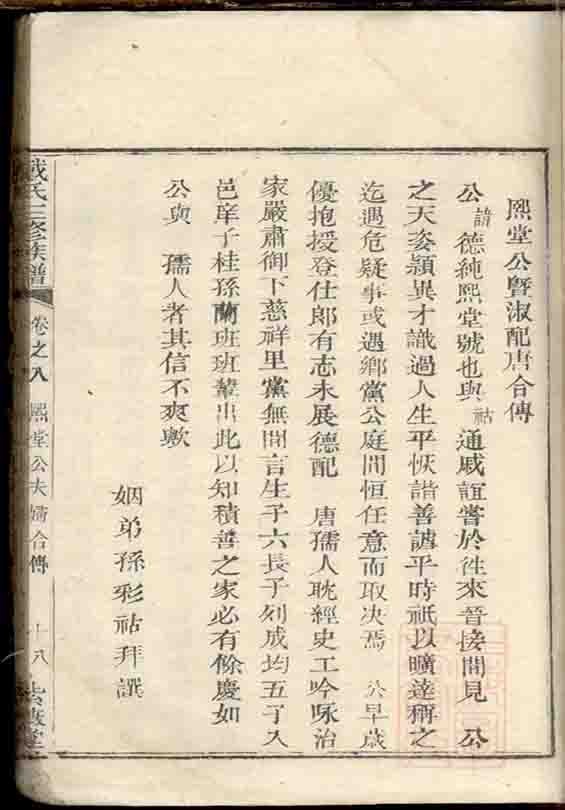 熙堂公暨淑配唐合傳
公諱德純熙堂號也與祜通戚誼嘗於往來晉接間見公
之天姿穎異才識過人生平恢諧善謔平時祇以曠達稱之
迄遇危疑事或遇鄉黨公庭間恒任意而取決焉公早歲
優抱授登仕郎有志未展德配唐孺人耽經史工吟咏治
家嚴肅御下慈祥里黨無間言生子六長子列成均五子入
邑庠子桂孫蘭班班輩出此以知積善之家必有餘慶如
公與孺人者其信不爽歟
姻弟孫彩祜拜譔
氏三修族譜
卷之八
熙堂公夫婦合傳
十八